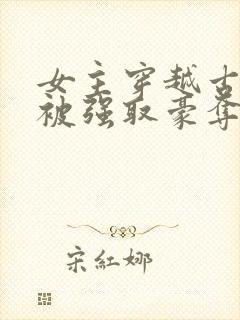 女主穿越古
被强取豪夺
宋紅娜